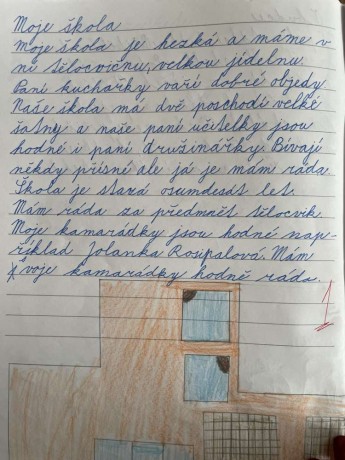 Moje škola
Moje škola je hezká a máme v
ní tělocvičnu, velkou jídelnu.
Paní kuchařky vaří dobré obědy.
Naše škola má dvě poschodí velké
šatny a naše paní učitelky jsou
hodné i paní družinářky. Bívají
někdy přísné ale já je mám ráda.
Škola je stará osumdesát let.
Mám ráda za předmnět tělocvik.
Moje kamarádky jsou hodné nap-
říklad Jolanka Rosipalová. Mám
svoje kamarádky hodně ráda.
1